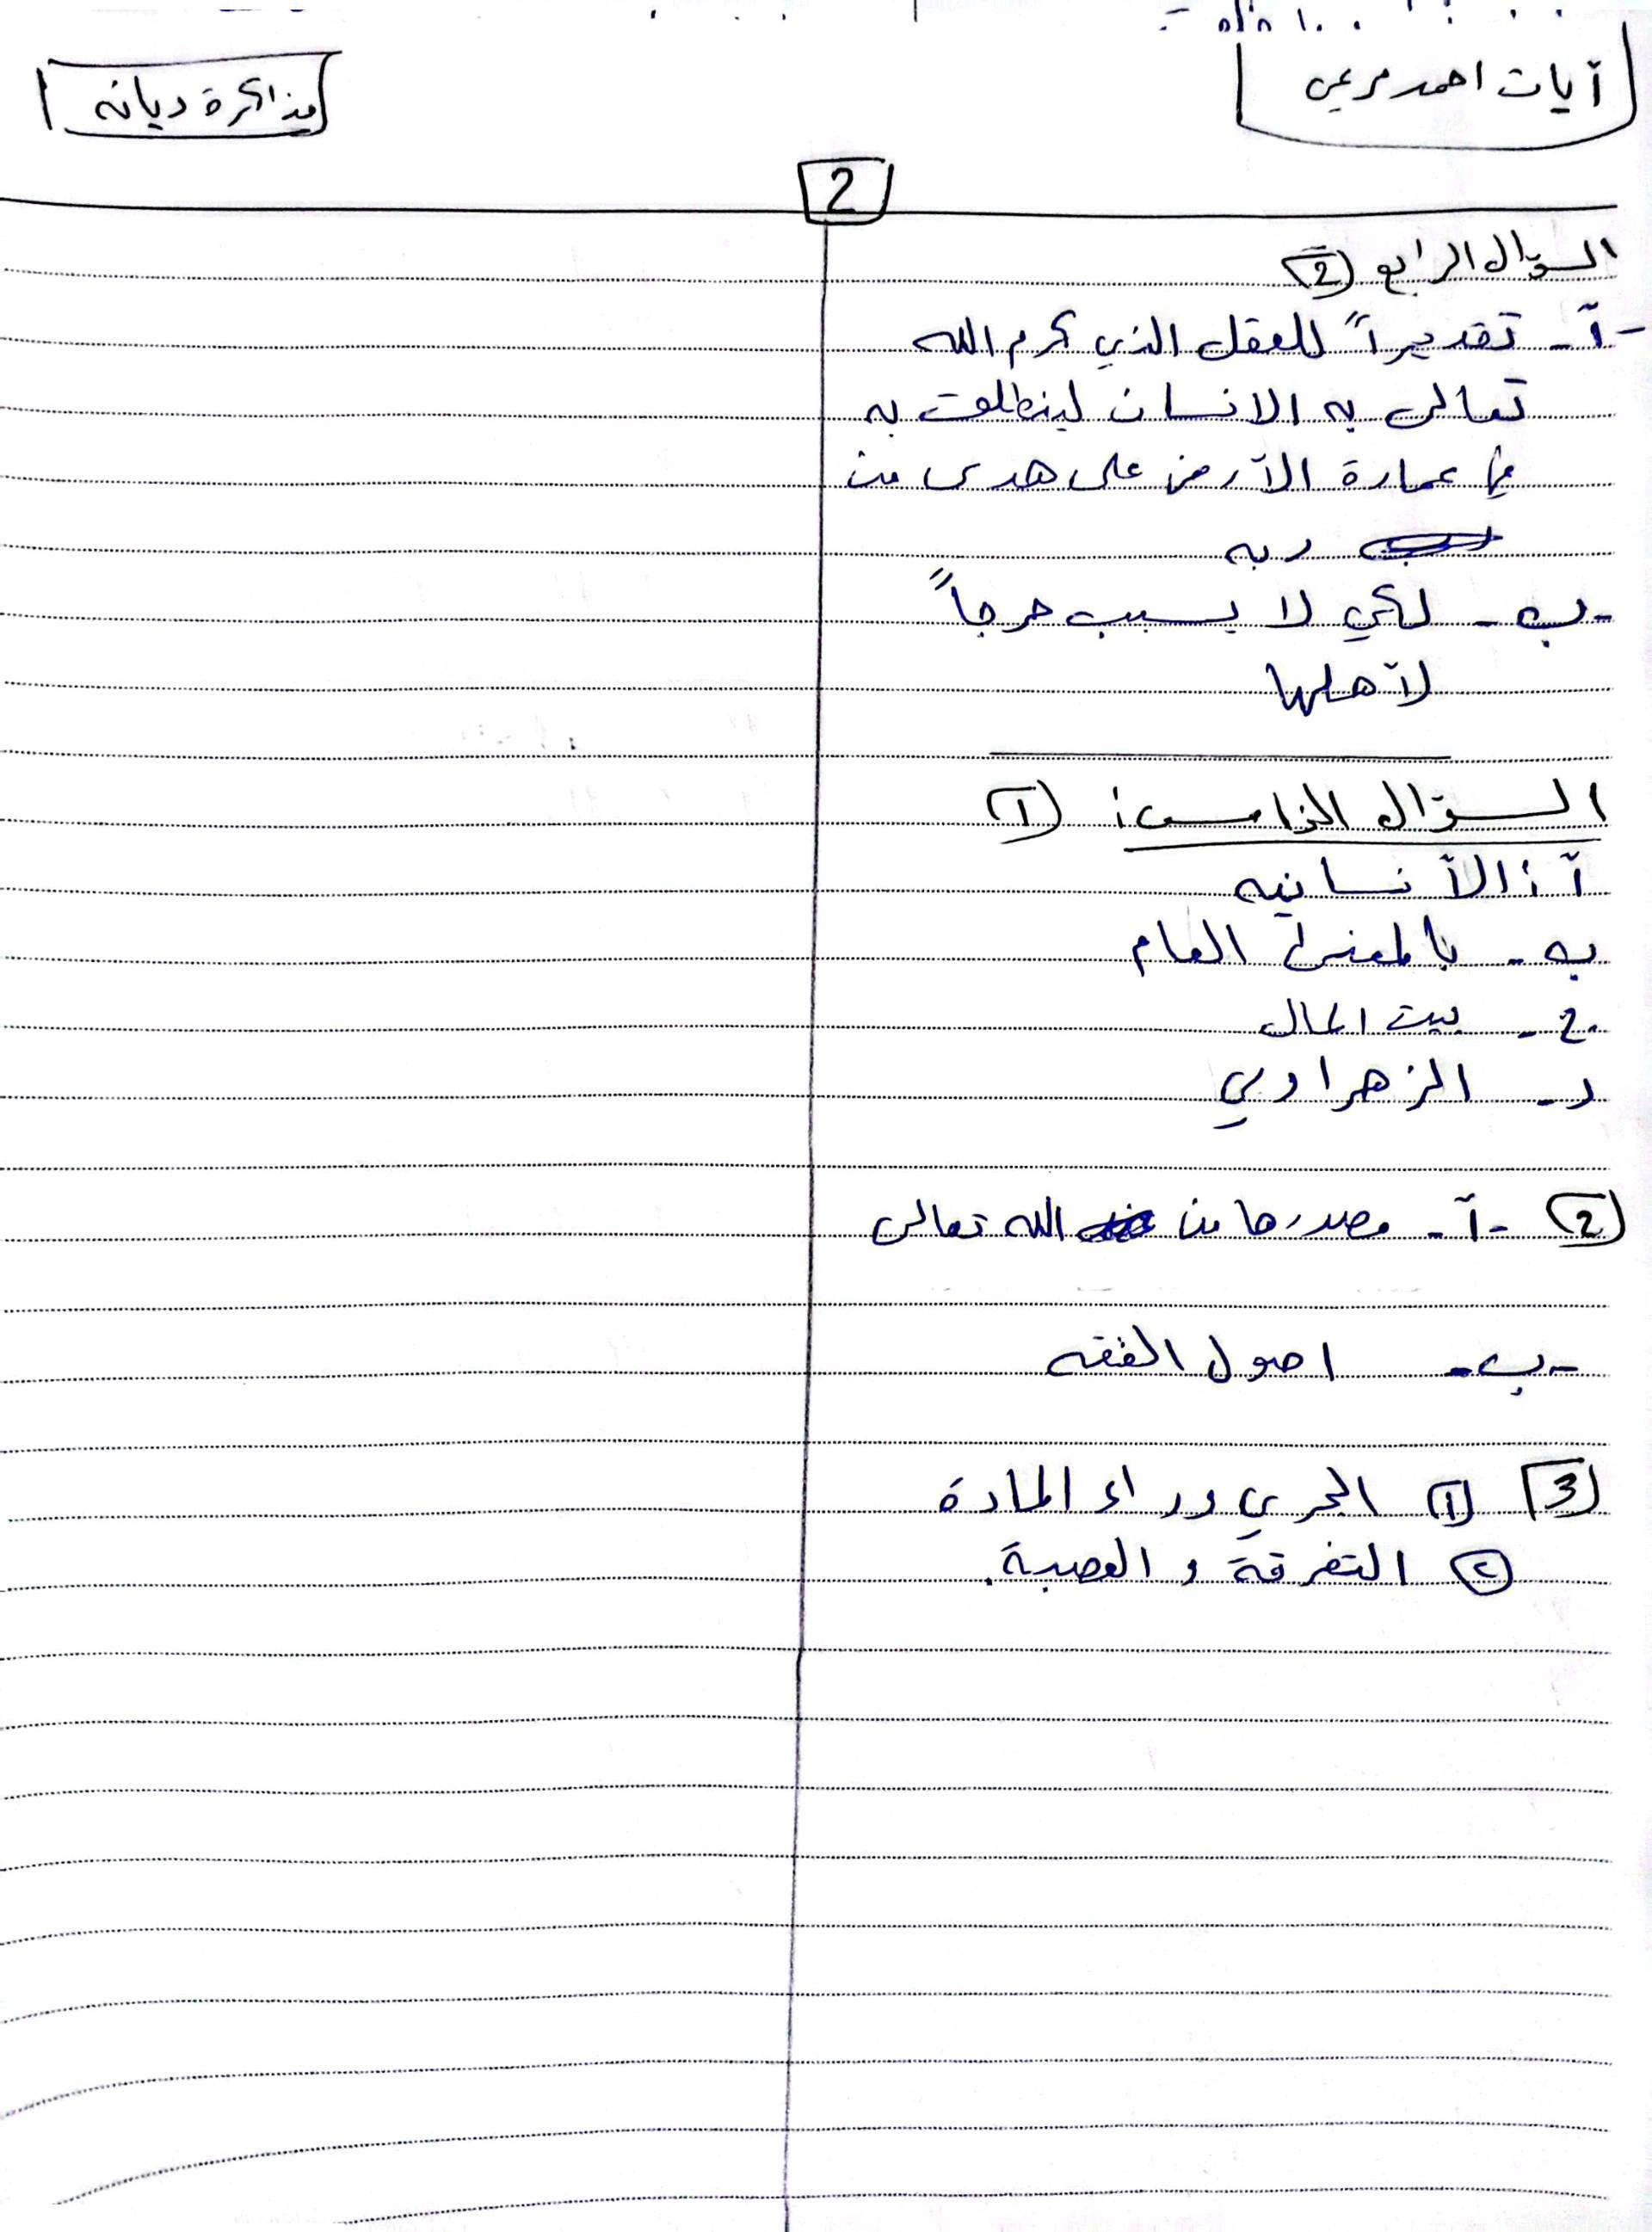 آيات احمد مرعي
مذاكرة ديانه
2
السؤال الرابع (2)
-آ- تقديراً للعقل الذي كرم الله
تعالى به الانسان لينطلق به
في عمارة الآرض على هدى من
ربه
-ب- لكي لا يسبب حرجاً
لآهلها
السؤال الخامس: (1)
آ: الآنسانيه
ب- بالمعنى العام
ج- بيت المال
د- الزهراوي
(2) -آ- مصدرها من الله تعالى
-ب- اصول الفقه
(3) (1) الجري وراء المادة
(2) التفرقة و العصبة.